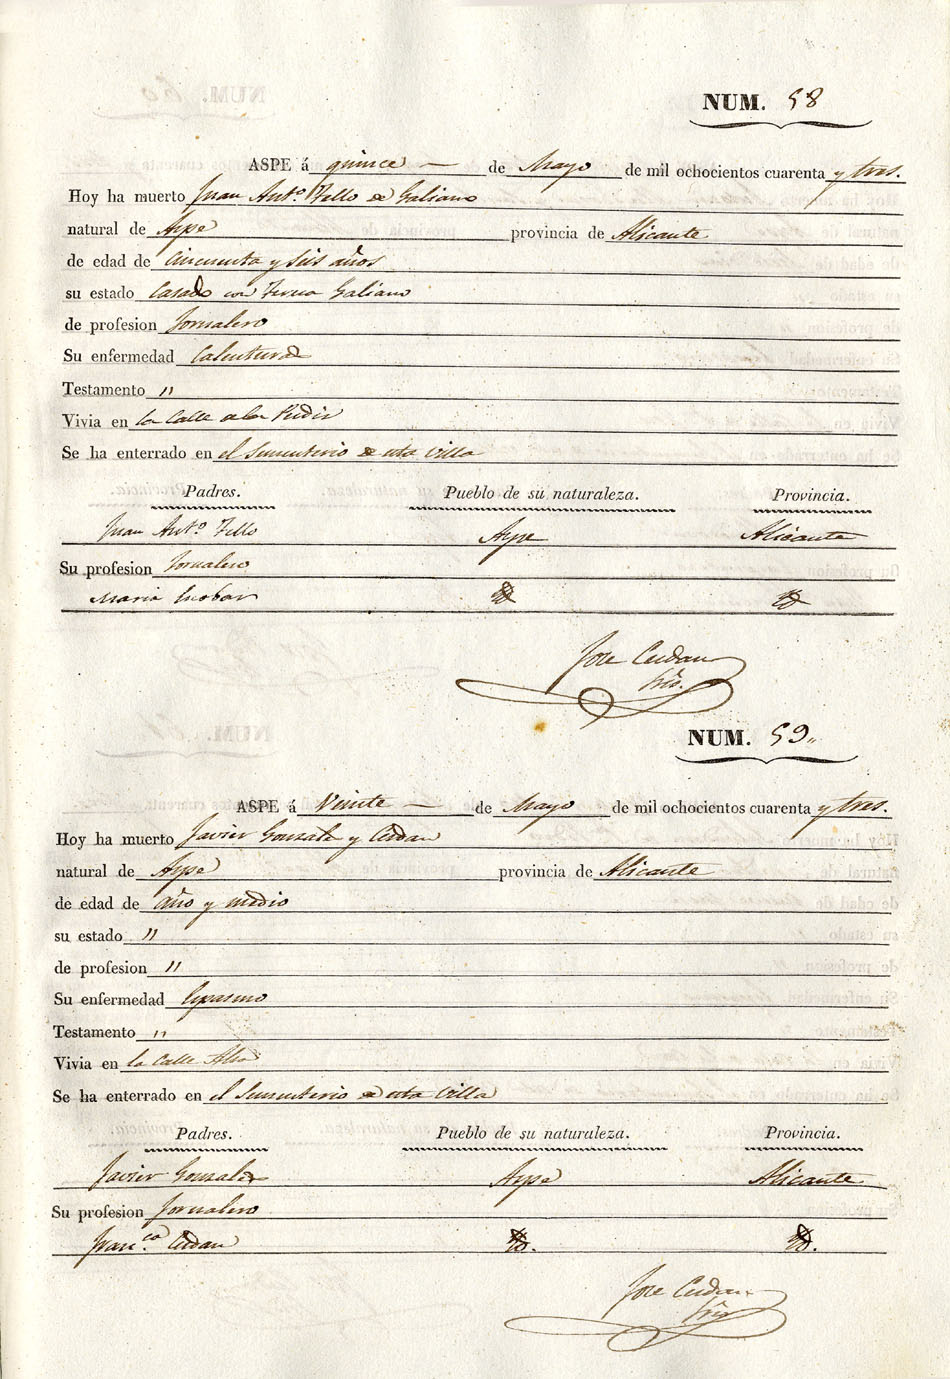 NUM. 58
ASPE á quince — de Mayo de mil ochocientos cuarenta y tres.
Hoy ha muerto Juan Ant.º Tello de Galiano
natural de Aspe provincia de Alicante
de edad de Cincuenta y seis años
su estado Casado con Teresa Galiano
de profesion Jornalero
Su enfermedad Calenturas
Testamento "
Vivia en la Calle de la
Se ha enterrado en el Sementerio de esta villa
Padres. Pueblo de su naturaleza. Provincia.
Juan Ant.º Tello Aspe Alicante
Su profesion Jornalero
Maria Escobar Yd Yd
Jose Cerdan
NUM. 59
ASPE á Veinte — de Mayo de mil ochocientos cuarenta y tres.
Hoy ha muerto Javier Gonzalez y Cerdan
natural de Aspe provincia de Alicante
de edad de año y medio
su estado "
de profesion "
Su enfermedad Espasmo
Testamento "
Vivia en la Calle Alta
Se ha enterrado en el Sementerio de esta villa
Padres. Pueblo de su naturaleza. Provincia.
Javier Gonzalez Aspe Alicante
Su profesion Jornalero
Fran.ca Cerdan Yd. Yd.
Jose Cerdan